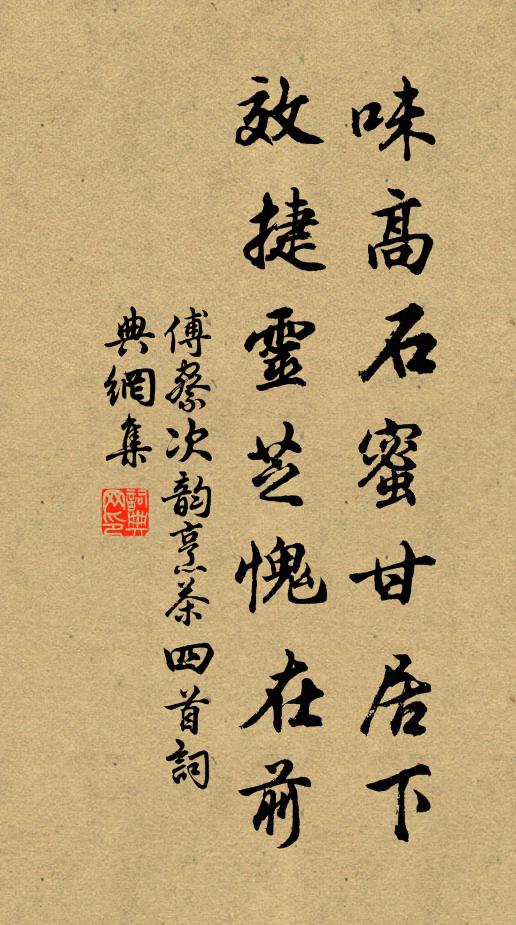 味高石蜜甘居下
效捷靈芝愧在前
傅察次韵烹茶四首詞
典網集
詞典網印